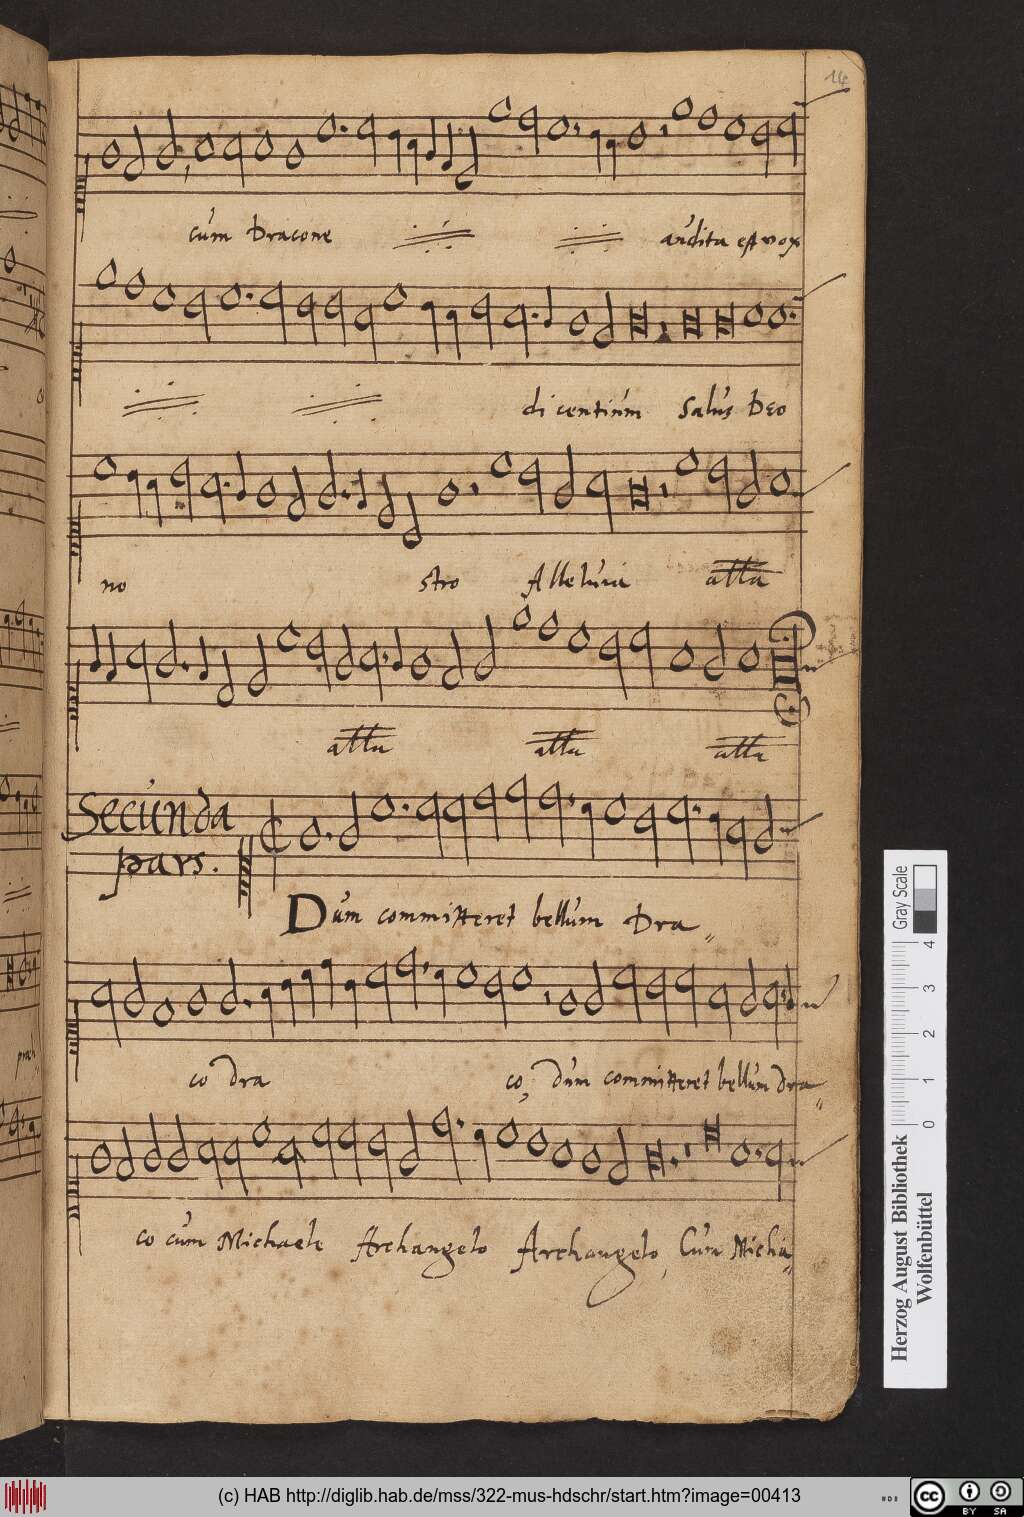 14
cum Dracone audita est vox
dicentium Salus Deo
no stro Alleluia alla
alla alla alla
Secunda
pars.
Dum committeret bellum Dra
co dra co, dum committeret bellum dra
co cum Michaele Archangelo Archangelo, Cum Micha
Gray Scale
0 1 2 3 4
Herzog August Bibliothek
Wolfenbüttel
(c) HAB http://diglib.hab.de/mss/322-mus-hdschr/start.htm?image=00413
cc BY SA